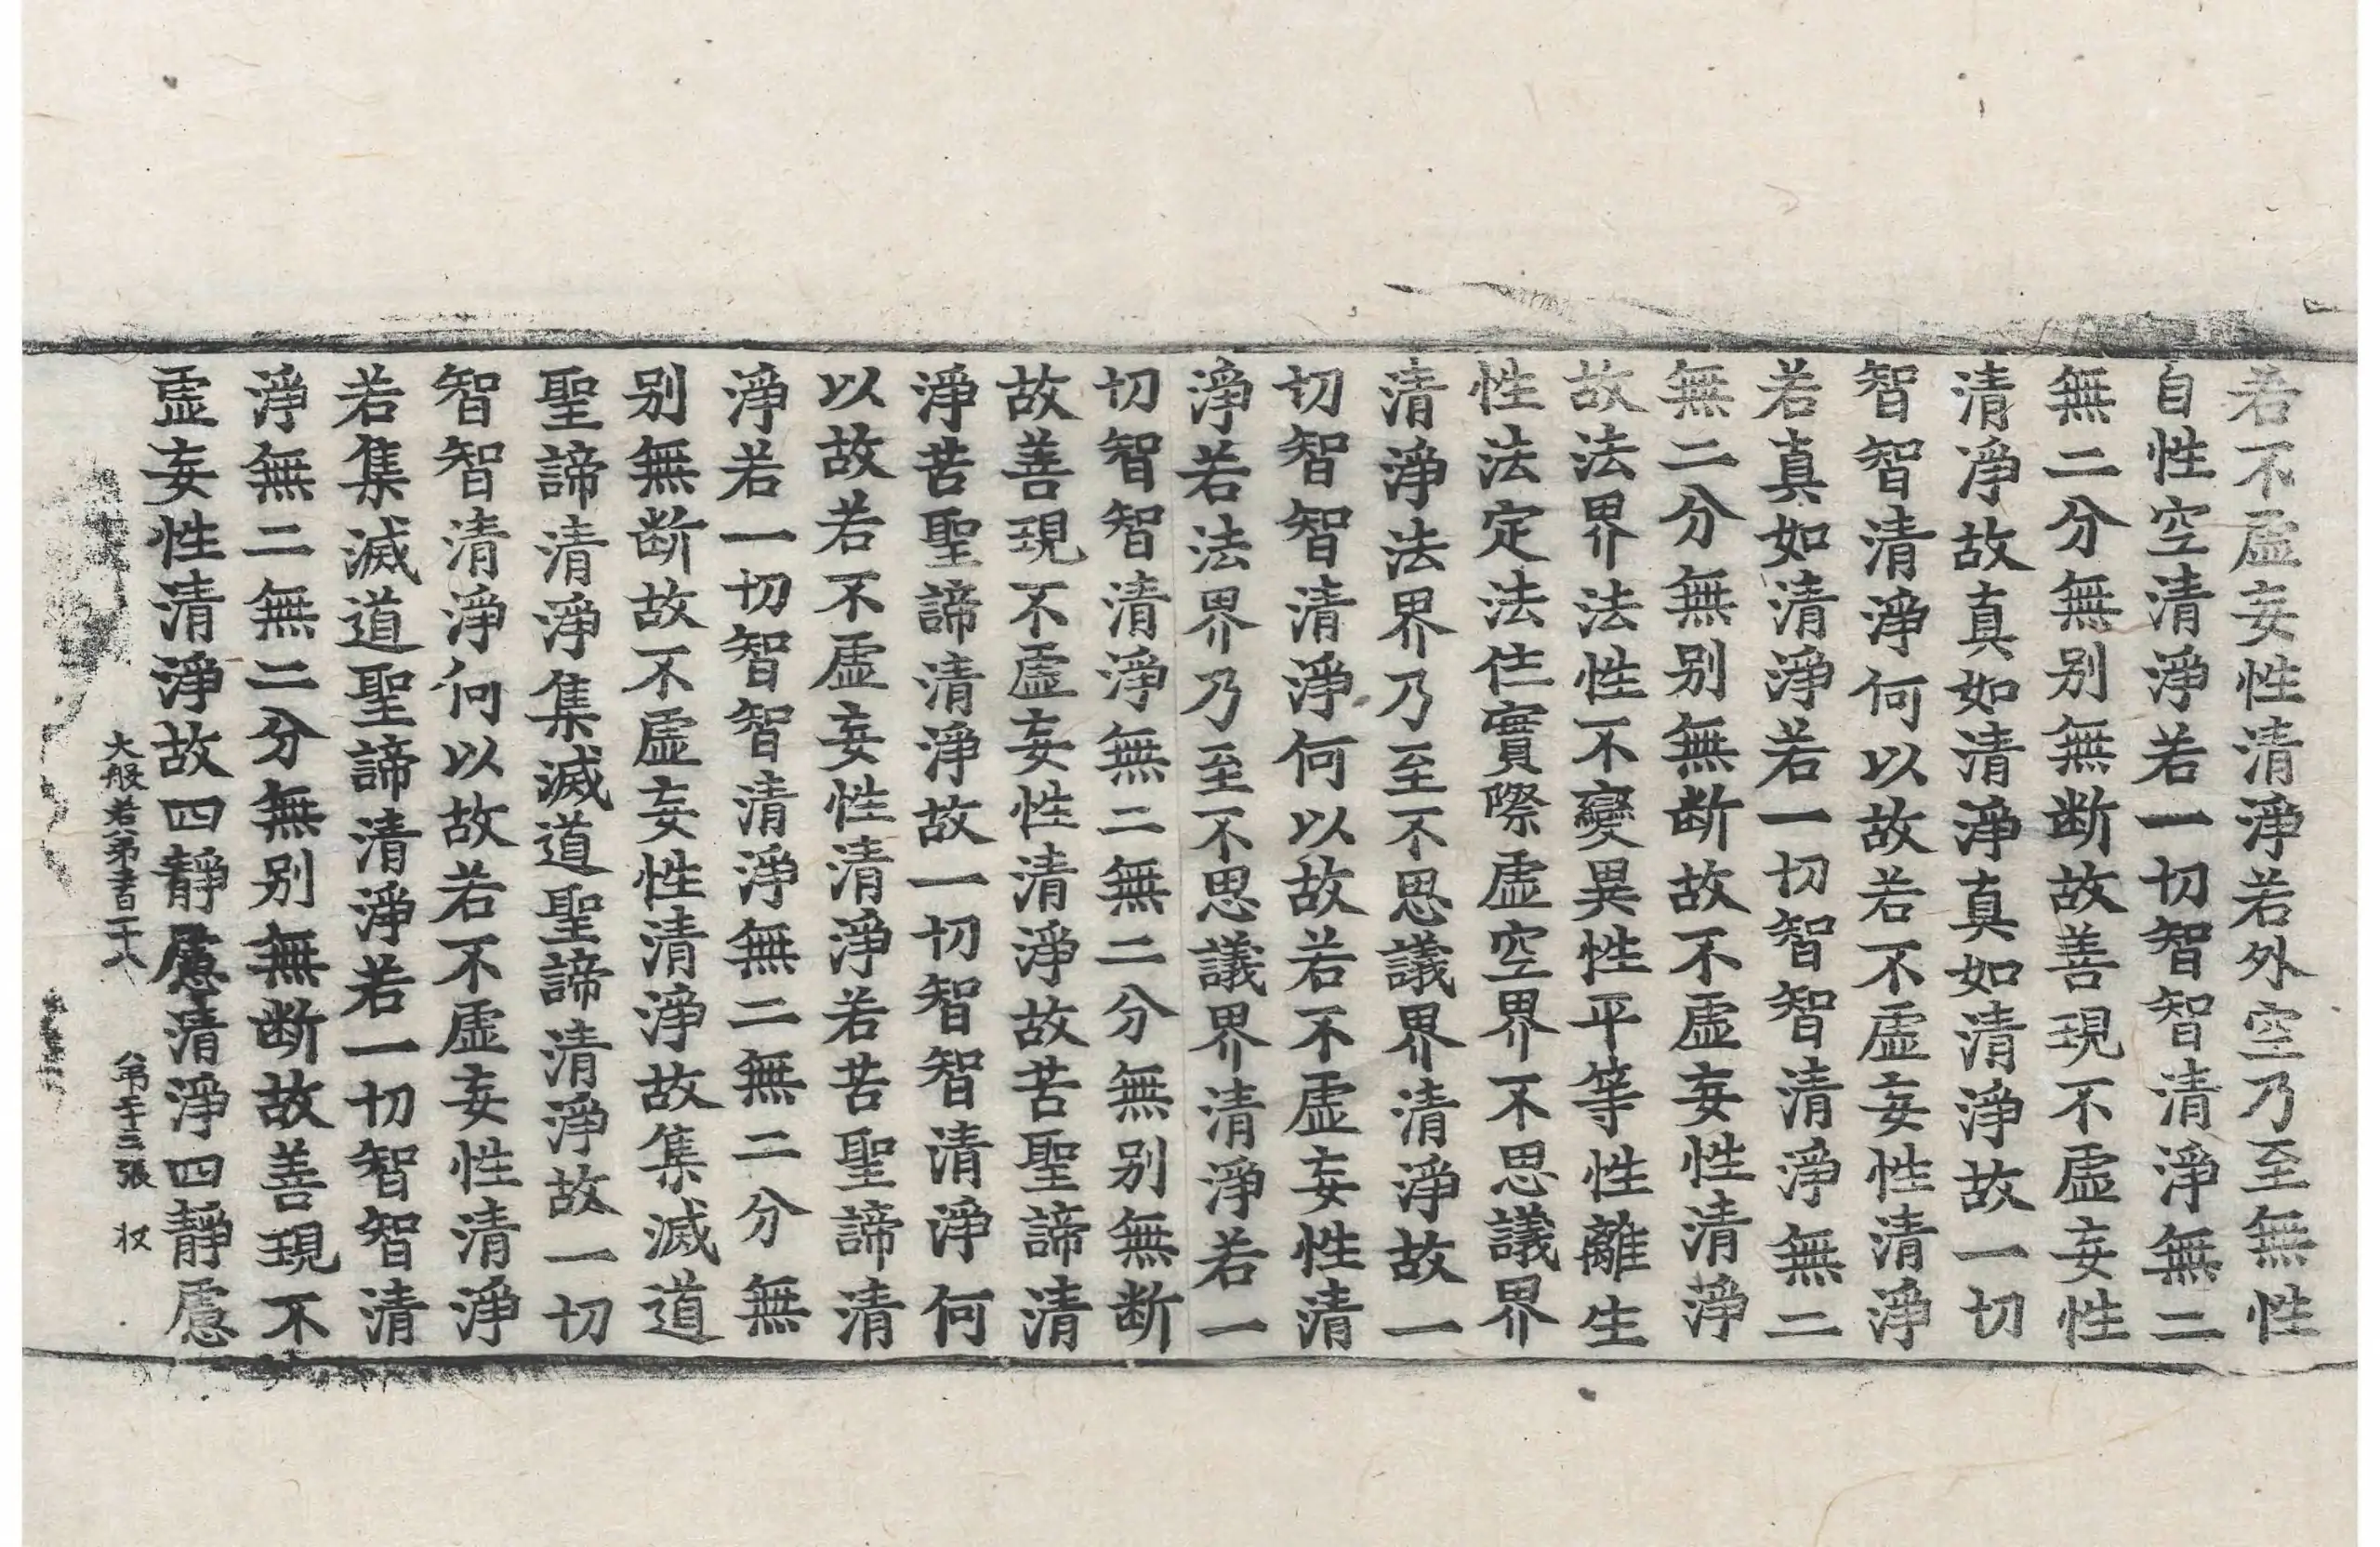 若不虛妄性清淨若外空乃至無性
自性空清淨若一切智智清淨無二
無二分無别無断故善現不虛妄性
清淨故真如清淨真如清淨故一切
智智清淨何以故若不虛妄性清淨
若真如清淨若一切智智清淨無二
無二分無别無断故不虛妄性清淨
故法界法性不變異性平等性離生
性法定法住實際虛空界不思議界
清淨法界乃至不思議界清淨故一
切智智清淨何以故若不虛妄性清
淨若法界乃至不思議界清淨若一
切智智清淨無二無二分無别無断
故善現不虛妄性清淨故苦聖諦清
淨苦聖諦清淨故一切智智清淨何
以故若不虛妄性清淨若苦聖諦清
淨若一切智智清淨無二無二分無
别無断故不虛妄性清淨故集滅道
聖諦清淨集滅道聖諦清淨故一切
智智清淨何以故若不虛妄性清淨
若集滅道聖諦清淨若一切智智清
淨無二無二分無别無断故善現不
虛妄性清淨故四靜慮清淨四靜慮
大般若第二百二十八 第二十三張